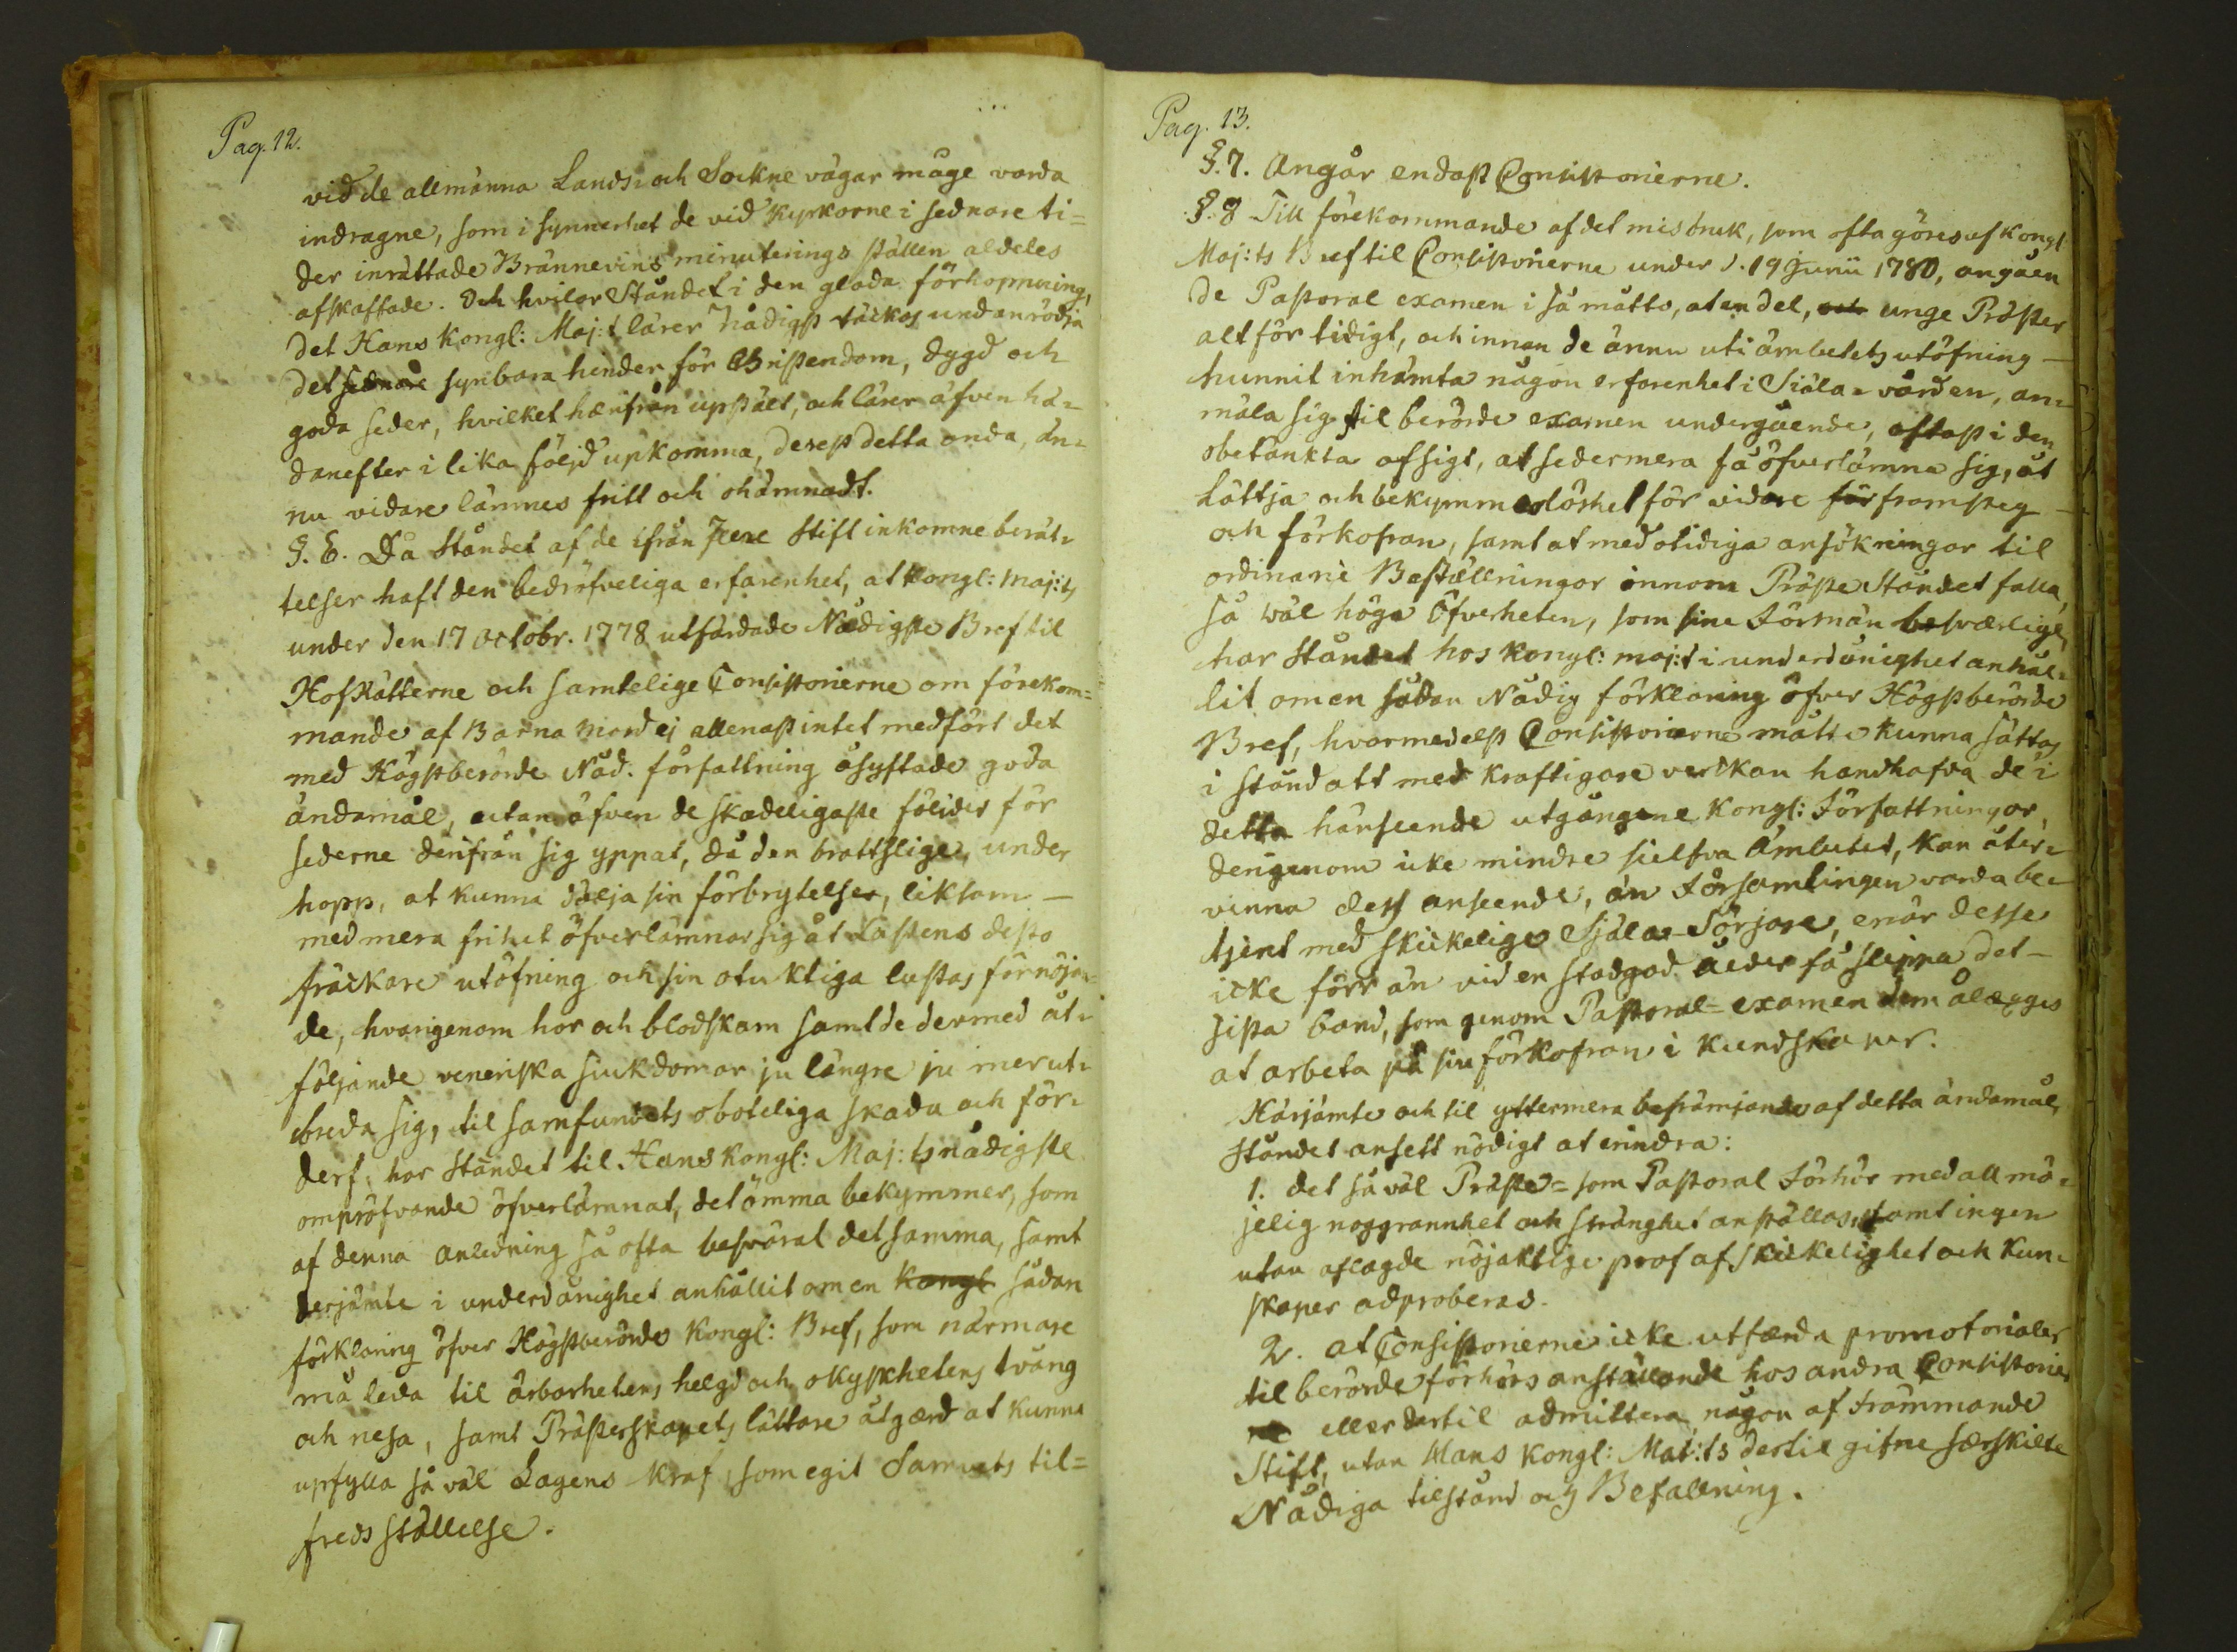 Pag. 12.
vid de allmänna Lands- och Sockne vägar måge varda
indragne, som i synnerhet de vid kyrkorne i sednare ti=
der inrättade Brännevins minuterings ställen aldeles
afskaffade. Och hvilar Ståndet i den glada förhoppning,
det Hans Kongl: Maj:t lärer Nådigst täckas undanrödja
det sednare synbara hinder för Christendom, dygd och
goda seder, hvilket härifrån upstält, och lärer äfven hä=
danefter i lika följd upkomma, derest detta onda, än=
nu vidare lämnes fritt och ohämnadt.
§. 6. Då Ståndet af de ifrån flere Stift inkomne berät=
telser haft den bedröfveliga erfarenhet, at Kongl: Maj:ts
under den 17 Octobr. 1778 utfärdade Nådigste Bref til
HofRätterne och samtelige Consistorierne om förekom=
mande af Barna Mord ej allenast intet medfört det
med Högstberörde Nåd. författning åsyftade goda
ändamål, utan äfven de skadeligaste följder för
sederne derifrån sig yppat, då den brottslige, under
hopp, at kunna dölja sin förbrytelser, liksom —
med mera frihet öfverlämnar sig åt Lastens desto
fräckare utöfning och sin otuktiga lustas förnöjan=
de, hvarigenom hor och blodskam samt de dermed åt=
följande veneriska siukdomar ju längre ju mer ut=
breda sig, til samfundets oboteliga skada och för=
derf; har Ståndet til Hans Kongl: Maj:ts nådigste
ompröfvande öfverlämnat, det ömma bekymmer, som
af denna anledning så ofta besvärat det samma, samt
derjämte i underdånighet anhållit om en Kongl sådan
förklaring öfver Högstberörde Kongl: Bref, som närmare
må leda til ärbarhetens helgd och okyskhetens tvång
och nesa, samt Prästerskapets lättare åtgärd at kunna
upfylla så väl Lagens Kraf som egit Samvets til=
fredsställelse.
Pag. 13.
§. 7. Angår endast Consistorierne.
§. 8 Till förekommande af det misbruk, som ofta göres af Kongl
Maj:ts Bref til Consistorierne under d. 19 Junii 1780, angåen
de Pastoral examen i så måtto, at en del, och unge Präster
alt för tidigt, och innan de ännu uti ämbetets utöfning —
hunnit inhämta någon erfarenhet i Siäla-vården, an=
mäla sig til berörde examen undergående, oftast i den
obetänkta afsigt, at sedermera få öfverlämna sig, åt
Lättja och bekymmerlöshet för vidare för framsteg —
och förkofran, samt at med otidiga ansökningar til
ordinarie Beställningar innom PrästeStåndet falla,
så väl höga Öfverheten, som sine Förmän besvärlige
har Ståndet hos Kongl: Maj:t i underdånighet anhål=
lit om en sådan Nådig förklaring öfver Högstberörde
Bref, hvarmedelst Consistorierne måtte kunna sättas
i stånd att med kraftigare verckan handhafva de i
detta hänseende utgångne Kongl: Författningar,
derigenom icke mindre sielfva Ämbetet, kan åter=
vinna dess anseende, än Församlingen varda be=
tjent med skickelige Själa-Sörjare, enär desse
icke förr än vid en stadgad ålder få slippa det —
sista band, som genom Pastoral-examen dem ålägges
at arbeta på sin förkofran i kundskaper.
Härjämte och til yttermera befrämjande af detta ändamål,
Ståndet ansett nödigt at erindra:
1. det så väl Präste= som Pastoral Förhör med all mö=
jelig noggrannhet och stränghet anställas, samt ingen
utan aflagde nöjaktige prof af skickelighet och kun=
skaper adproberas.
2. at Consistorierne icke utfärda promotorialer
til berörde förhörs anställande hos andra Consistorier
eller dertil admittera någon af främmande
Stift, utan Hans Kongl: Maj:ts dertil gifne särskilte
Nådiga tilstånd och Befallning.